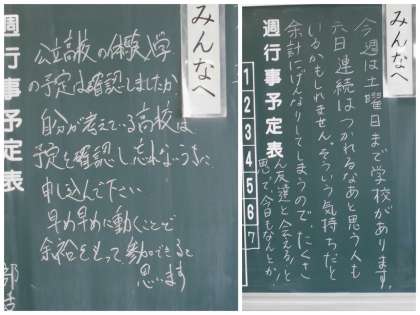 みんなへ
公立高校の体験入学
の予定は確認しましたか
自分が考えている高校は
予定を確認し忘れないうちに
申し込んで下さい
早め早めに動くことで
余裕をもって参加できると
思います
週行事予定表
みんなへ
今週は土曜日まで学校があります。
六日連続はつかれるなあと思う人も
いるかもしれません。そういう気持ちだと
余計にげんなりしてしまうので、たくさ
ん友達と会える！と
思って、今日もなんとか
週行事予定表
1
2
3
4
5
6
7